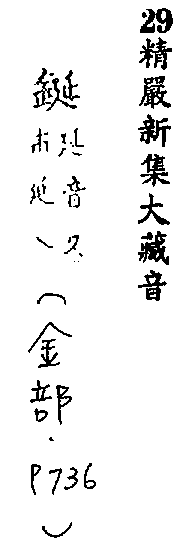 29精嚴新集大藏音
鋋
延音又
市延丶
（金部．P736）